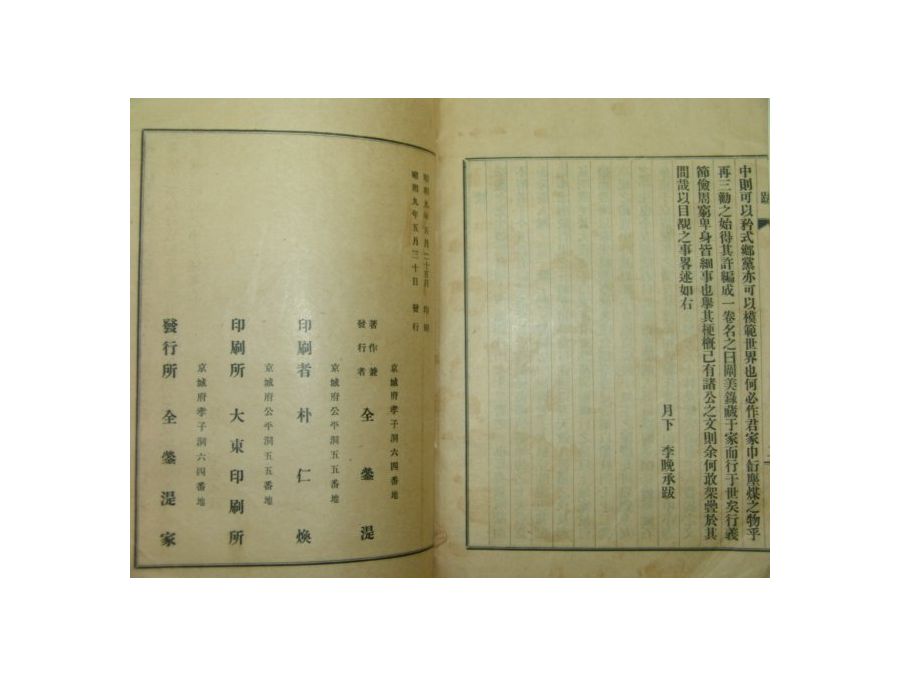 跋
中則可以矜式鄕黨亦可以模範世界也何必作君家巾衍塵煤之物乎
再三勸之始得其許編成一卷名之曰闡美錄藏于家而行于世矣行義
節儉周窮卑身皆細事也擧其梗槪已有諸公之文則余何敢架疊於其
間哉以目覩之事畧述如右
月下 李晚承跋
昭和九年五月二十五日 印刷
昭和九年五月三十日 發行
京城府孝子洞六四番地
著作兼
發行者 全 湜
京城府公平洞五五番地
印刷者 朴仁煥
京城府公平洞五五番地
印刷所 大東印刷所
京城府孝子洞六四番地
發行所 全 湜家